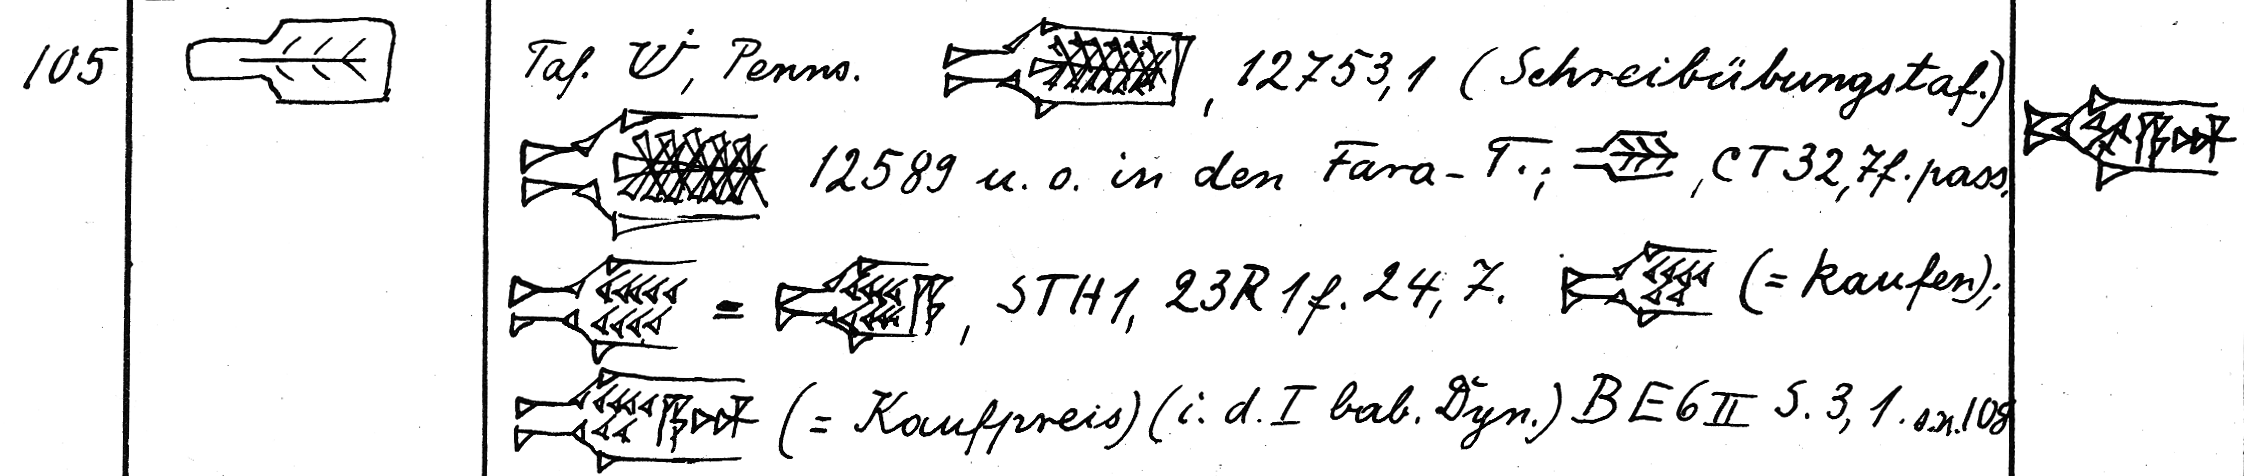 105 Taf. Ẇ, Penns. , 12753,1 (Schreibübungstaf.)
12589 u. o. in den Fara-T.; , CT 32, 7f. pass.
= , STH 1, 23 R 1f. 24, 7. (= kaufen);
(= Kaufpreis) (i. d. I bab. Dyn.) BE 6 II S. 3, 1. s.n. 108